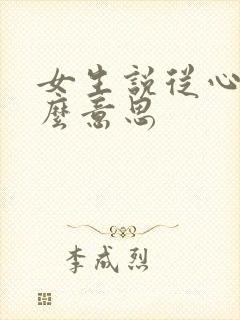 女生説從心
麼意思
李成烈